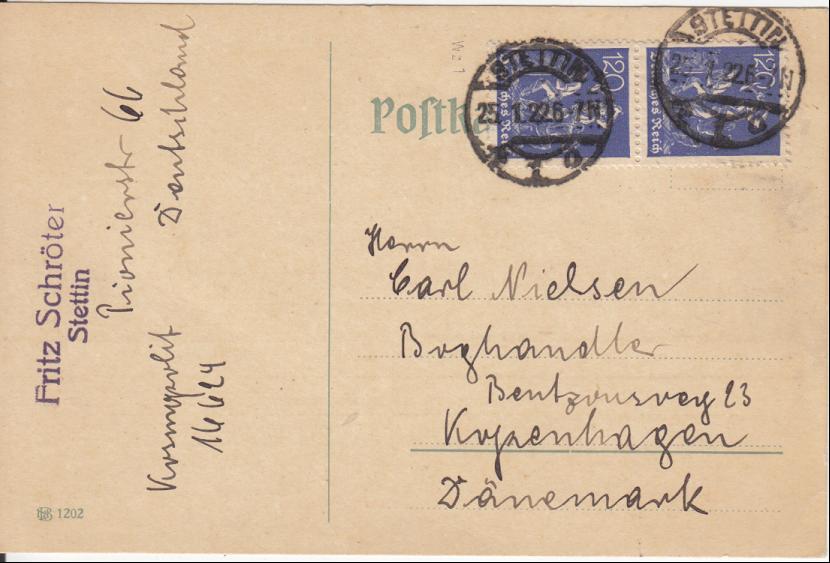 Fritz Schröter
Stettin
Pionierstr 66
Deutschland
Kosmopolit
14624
1202
W z 1
Postk
120
Deutsches Reich
120
Deutsches Reich
STETTIN
25.1.22 6-7N
1
STETTIN
25.1.22 6-7N
1
Herrn
Carl Nielsen
Boghandler
Bentzonsvej 23
Kopenhagen
Dänemark